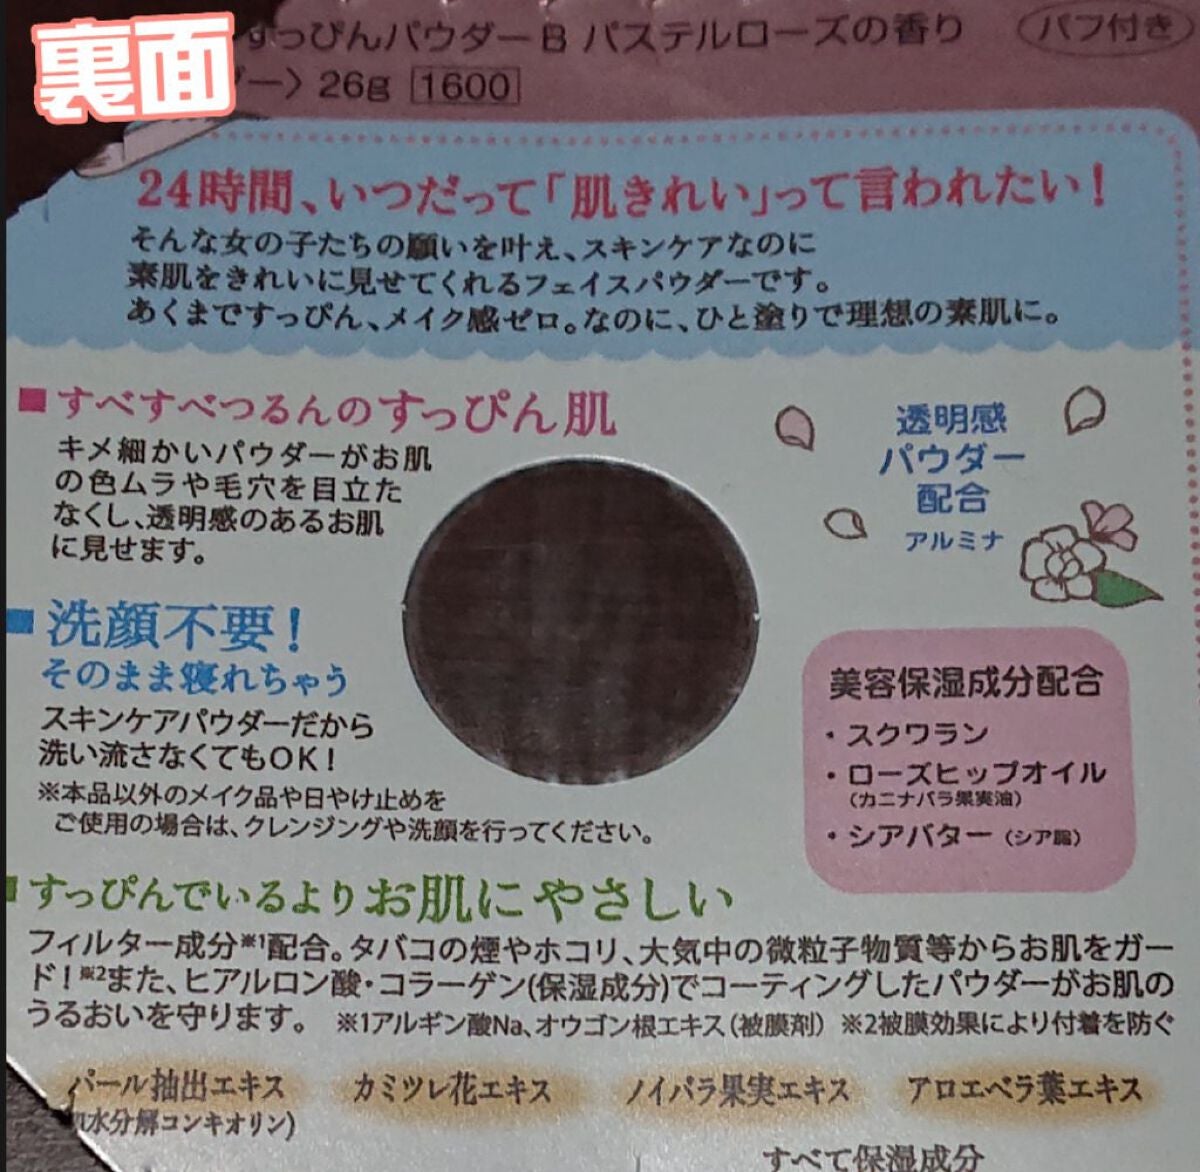 裏面
すっぴんパウダーB パステルローズの香り パフ付き
ー〉26g 1600
24時間、いつだって「肌きれい」って言われたい!
そんな女の子たちの願いを叶え、スキンケアなのに
素肌をきれいに見せてくれるフェイスパウダーです。
あくまですっぴん、メイク感ゼロ。なのに、ひと塗りで理想の素肌に。
■すべすべつるんのすっぴん肌
キメ細かいパウダーがお肌
の色ムラや毛穴を目立た
なくし、透明感のあるお肌
に見せます。
透明感
パウダー
配合
アルミナ
■洗顔不要!
そのまま寝れちゃう
スキンケアパウダーだから
洗い流さなくてもOK!
※本品以外のメイク品や日やけ止めを
ご使用の場合は、クレンジングや洗顔を行ってください。
美容保湿成分配合
・スクワラン
・ローズヒップオイル
(カニナバラ果実油)
・シアバター(シア脂)
■すっぴんでいるよりお肌にやさしい
フィルター成分※1配合。タバコの煙やホコリ、大気中の微粒子物質等からお肌をガー
ド!※2また、ヒアルロン酸・コラーゲン(保湿成分)でコーティングしたパウダーがお肌の
うるおいを守ります。 ※1アルギン酸Na、オウゴン根エキス(被膜剤) ※2被膜効果により付着を防ぐ
パール抽出エキス カミツレ花エキス ノイバラ果実エキス アロエベラ葉エキス
水分解コンキオリン)
すべて保湿成分